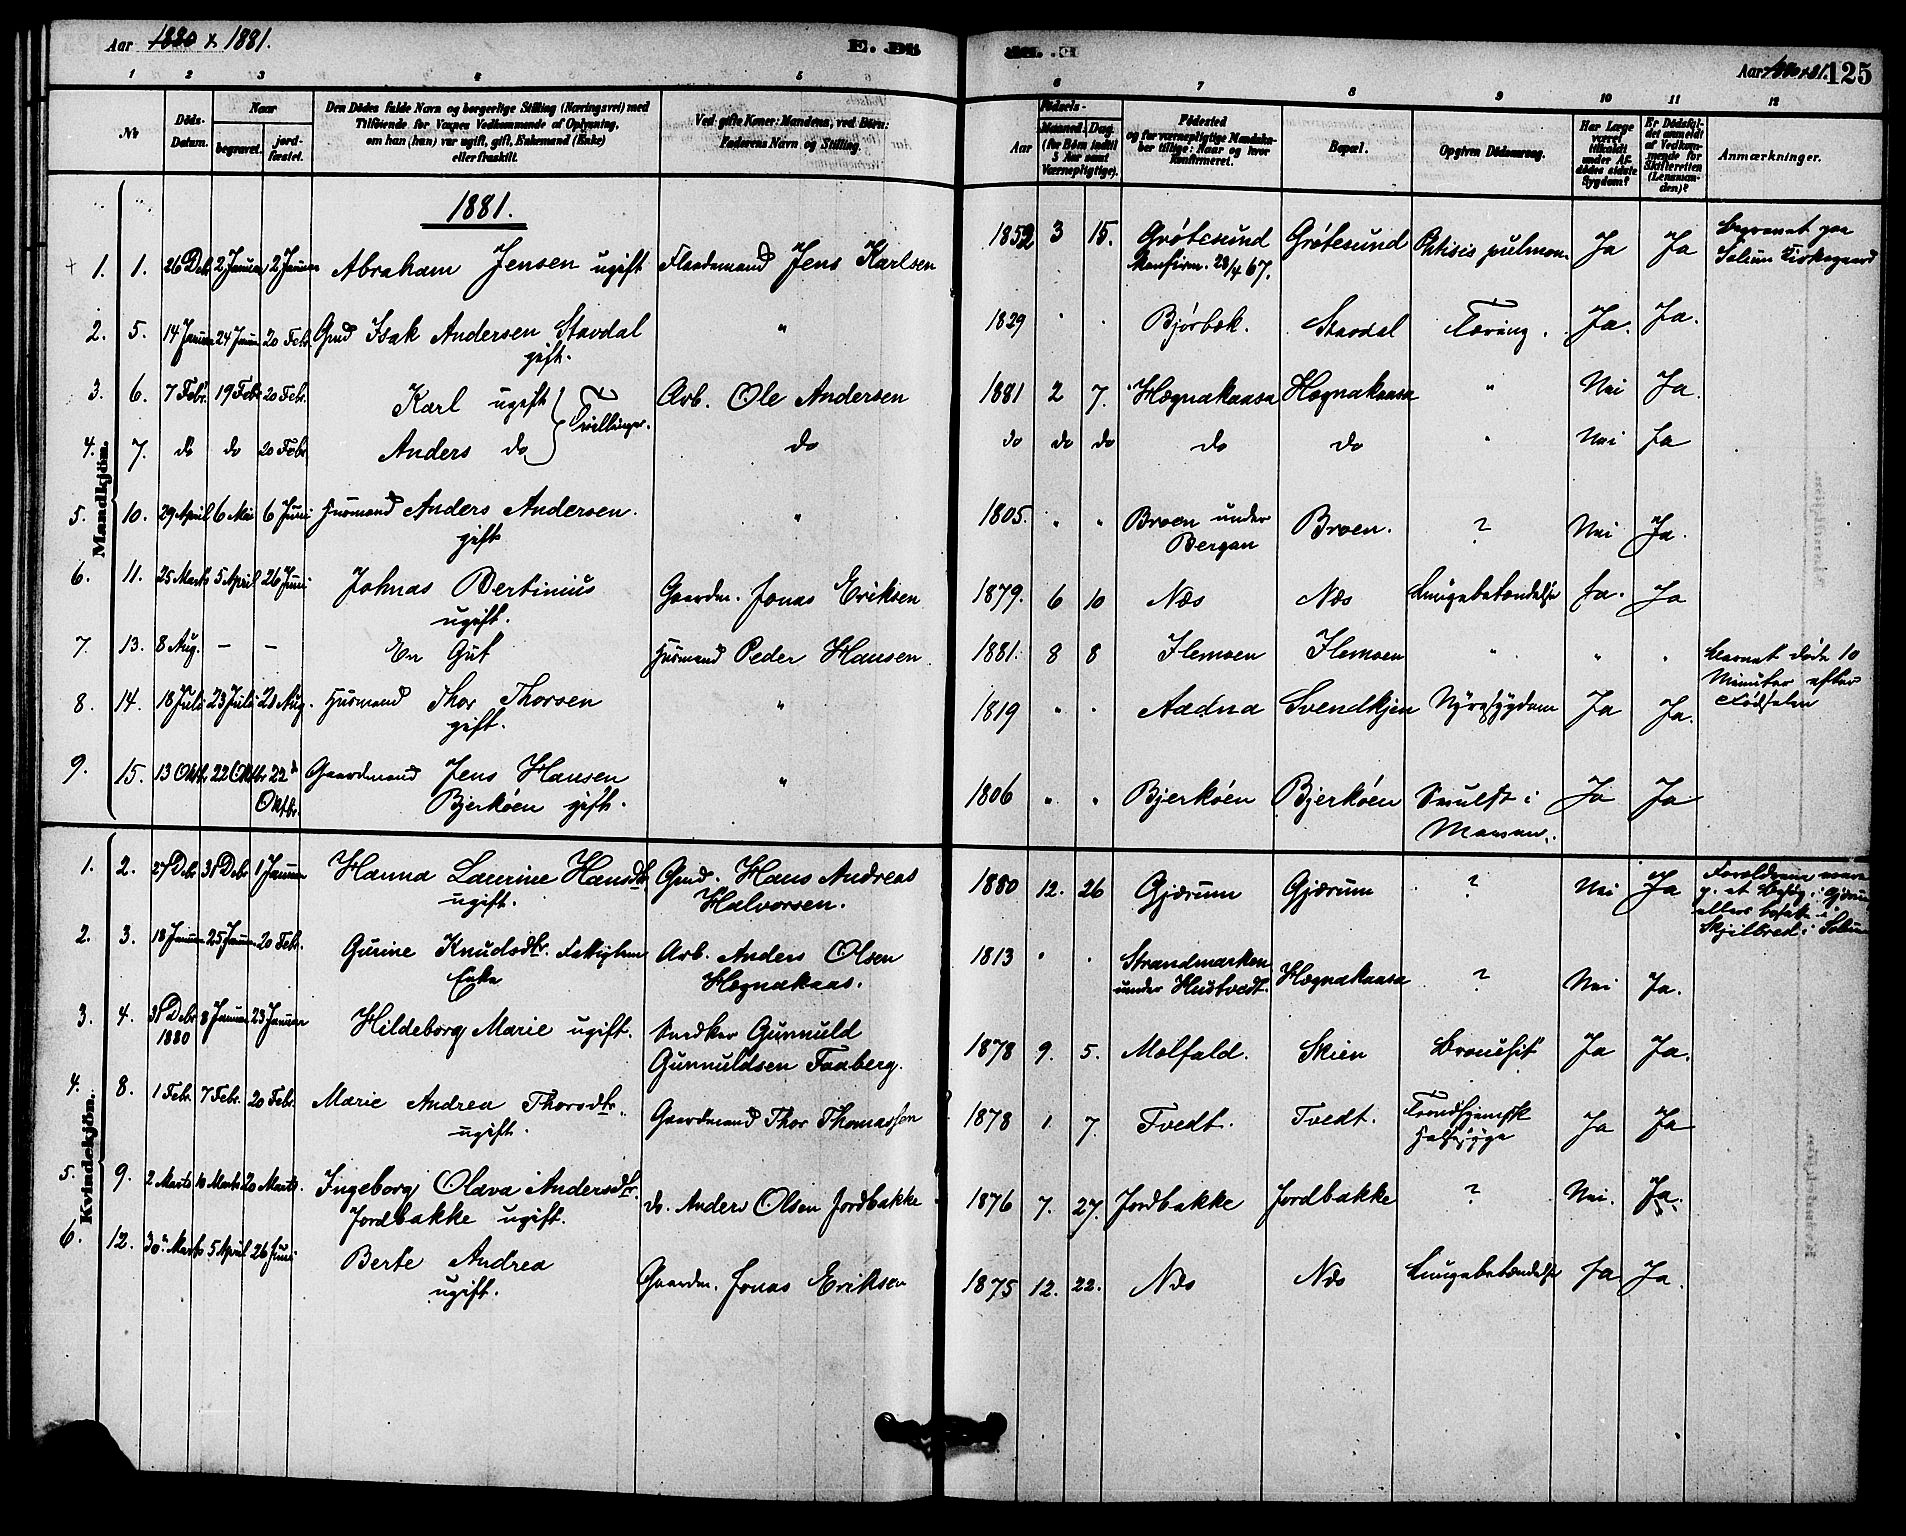 Aar 1880 & 1881.
E. Dö
Aar 1880 & 81. 125
1 2 3 4 5 6 7 8 9 10 11 12
No
Döds-Datum.
Naar
begravet.
jord-fæstet.
Den Dödes fulde Navn og borgerlige Stilling (Næringsvei) med
Tilföiende for Voxnes Vedkommende af Oplysning,
om han (hun) var ugift, gift, Enkemand (Enke)
eller fraskilt.
Ved gifte Koner: Mandens, ved Börn:
Faderens Navn og Stilling.
Födsels-
Aar
Maaned. Dag.
(for Börn indtil
5 Aar samt
Værnepligtige).
Födested
og for værnepligtige Mandskaber tillige: Naar og hvor
konfirmeret.
Bopæl.
Opgiven Dödsaarsag.
Har Læge
været
tilkaldt
under Afdödes sidste
Sygdom?
Er Dödsfaldet anmeldt
af Vedkommende for
Skifteretten
(Lensmanden)?
Anmærkninger.
1881.
Mandkjön.
1. 1. 26 Debr 2 Januar 2 Januar Abraham Jensen ugift Jens Karlsen 1852 3 15. Grötesund Grötesund Phtisis pulmon. Ja Ja Begravet paa
Konfirm. 28/4 67. Solum Kirkegaard
2. 5. 14 Januar 24 Januar 20 Febr. Gmd Isak Andersen Stavdal " 1829 " " Bjørbæk. Stavdal Tæring. Ja. Ja.
gift.
3. 6. 7 Febr. 19 Febr 20 Febr. Karl ugift Arb. Ole Andersen 1881 2 7. Høgnakaasa Høgnakaasa " Nei Ja.
Tvillinger.
4. 7. do do 20 Febr Anders do do do do do do do " Nei Ja
5. 10. 29 April 6 Mai 6 Juni Husmand Anders Andersen. " 1805. " " Broen under Broen. ? Nei Ja.
gift Bergan
6. 11. 25 Marts 5 April 26 Juni Johnas Bertinius Gaardm. Jonas Eriksen 1879. 6 10 Næs Næs Lungebetændelse Ja. Ja
ugift.
7. 13. 8 Aug. - - En Gut Husmand Peder Hansen. 1881. 8 8 Flemoen Flemoen " " " Barnet døde 10
Minuter efter
Fødselen
8. 14. 18 Juli 23 Juli 28 Aug. Husmand Thor Thorsen " 1819 " " Aadna Svendkjen Nyresygdom Ja Ja.
gift.
9. 15. 13 Oktbr 22 Oktbr 22 Oktbr. Gaardmand Jens Hansen " 1806 " " Bjerköen Bjerköen Svulst i Ja Ja
Bjerköen gift. Maven.
Kvindekjön.
1. 2. 27 Debr 31 Debr 1 Januar Hanna Laurine Hansdtr Gmd. Hans Andreas 1880 12. 26 Gjærum Gjærum ? Nei Ja Forældrene vare
ugift. Halvorsen. p. et Besøg i Gjærum
ellers bosatte i
Skjelbred i Solum
2. 3. 18 Januar 25 Januar 20 Febr. Gurine Knudsdtr. Fattiglem Arb. Anders Olsen 1813 " " Strandmarken Høgnakaasa ? Nei Ja.
Enke Høgnakaas. under Hustvedt.
3. 4. 31 Debr 1880 8 Januar 23 Januar Hildeborg Marie ugift. Snedker Gunnuld 1878 9. 5. Molfald. Skien Bronchit Ja Ja.
Gunnuldsen Faaberg.
4. 8. 1 Febr. 7 Febr. 20 Febr. Marie Andrea Thorsdtr. Gaardmand Thor Thomassen 1878 1. 7. Tvedt. Tvedt. Trondhjemsk Ja Ja
ugift. Halssyge
5. 9. 2 Marts 10 Marts 20 Marts. Ingeborg Olava Andersdtr. do. Anders Olsen Jordbakke 1876 7. 27 Jordbakke Jordbakke ? Nei. Ja.
Jordbakke ugift.
6. 12. 30 Marts 5 April 26 Juni Berte Andrea Gaardm. Jonas Eriksen 1875 12. 22. Næs Næs Lungebetændelse Ja Ja.
ugift.